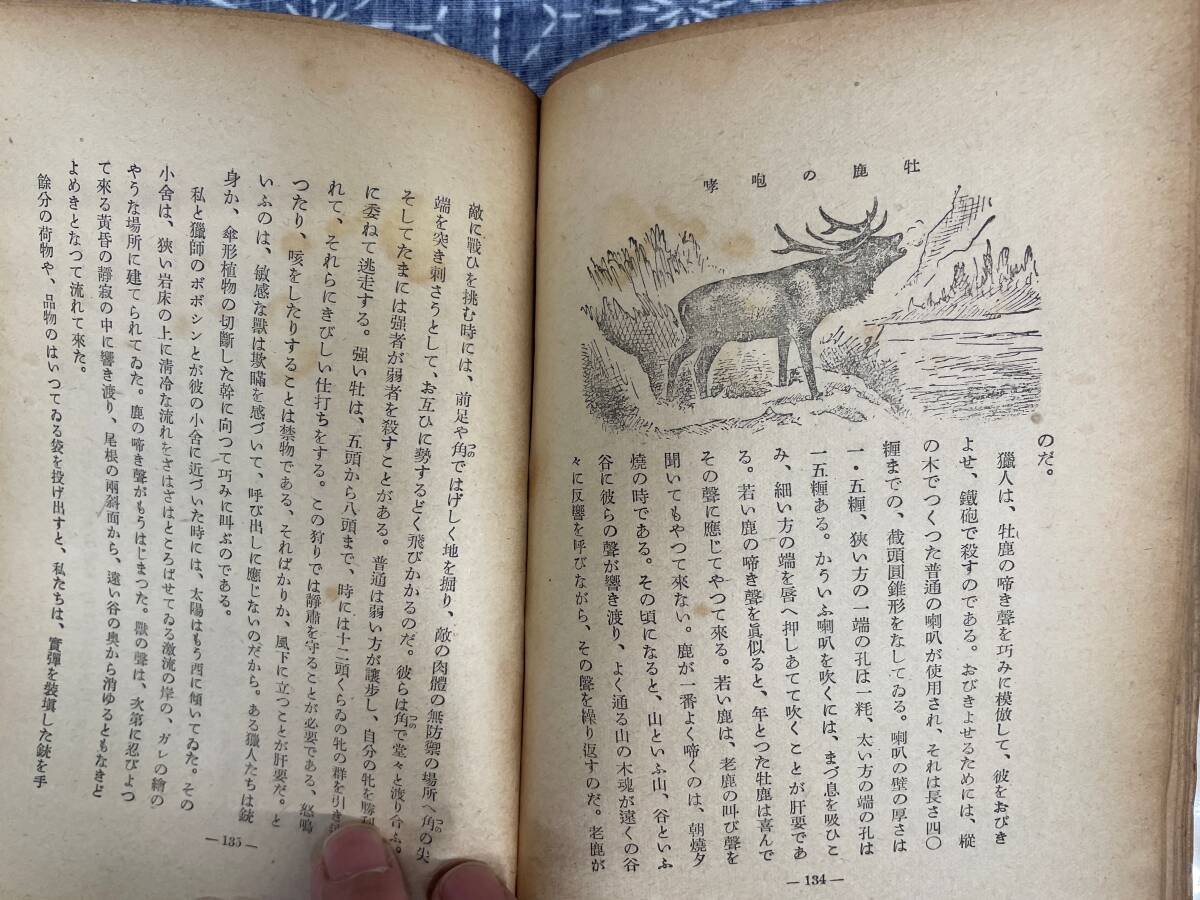 牡鹿の咆哮
のだ。
獵人は、牡鹿の啼き聲を巧みに模倣して、彼をおびき
よせ、鐵砲で殺すのである。おびきよせるためには、樅
の木でつくつた普通の喇叭が使用され、それは長さ四〇
糎までの、截頭圓錐形をなしてゐる。喇叭の壁の厚さは
一・五糎、狹い方の一端の孔は一粍、太い方の端の孔は
一五糎ある。かういふ喇叭を吹くには、まづ息を吸ひこ
み、細い方の端を唇へ押しあてて吹くことが肝要であ
る。若い鹿の啼き聲を眞似ると、年とつた牡鹿は喜んで
その聲に應じてやつて來る。若い鹿は、老鹿の叫び聲を
聞いてもやつて來ない。鹿が一番よく啼くのは、朝燒夕
燒の時である。その頃になると、山といふ山、谷といふ
谷に彼らの聲が響き渡り、よく通る山の木魂が遠くの谷
々に反響を呼びながら、その聲を繰り返すのだ。老鹿が
—134—
敵に戰ひを挑む時には、前足や角つのではげしく地を掘り、敵の肉體の無防禦の場所へ角つのの尖
端を突き刺さうとして、お互ひに勢するどく飛びかかるのだ。彼らは角つので堂々と渡り合ふ。
そしてたまには强者が弱者を殺すことがある。普通は弱い方が讓步し、自分の牝を勝利
に委ねて逃走する。强い牡は、五頭から八頭まで、時には十二頭くらゐの牝の群を引き
れて、それらにきびしい仕打ちをする。この狩りでは靜肅を守ることが必要である、怒鳴
つたり、咳をしたりすることは禁物である、そればかりか、風下に立つことが肝要だ。と
いふのは、敏感な獸は欺瞞を感づいて、呼び出しに應じないのだから。ある獵人たちは銃
身か、傘形植物の切斷した幹に向つて巧みに叫ぶのである。
私と獵師のボボシンとが彼の小舍に近づいた時には、太陽はもう西に傾いてゐた。その
小舍は、狹い岩床の上に淸冷な流れをさはさはところばせてゐる激流の岸の、ガレの繪の
やうな場所に建てられてゐた。鹿の啼き聲がもうはじまつた。獸の聲は、次第に忍びよつ
て來る黃昏の靜寂の中に響き渡り、尾根の兩斜面から、遠い谷の奧から消ゆるともなきど
よめきとなつて流れて來た。
餘分の荷物や、品物のはいつてゐる袋を投げ出すと、私たちは、實彈を裝塡した銃を手
—135—